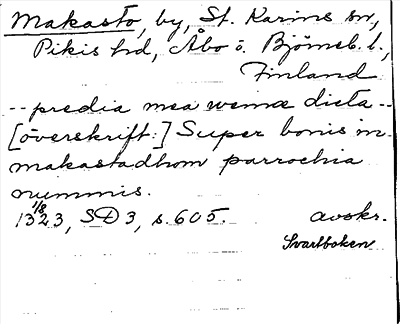 Makasto, by, St. Karins sn,
Pikis hd, Åbo o. Björneb. l.,
Finland
-- predia mea wemæ dicta --
[överskrift:] Super bonis in
makastadhom parrochia
nummis.
1/8
1323, SD 3, s. 605. avskr.
Svartboken